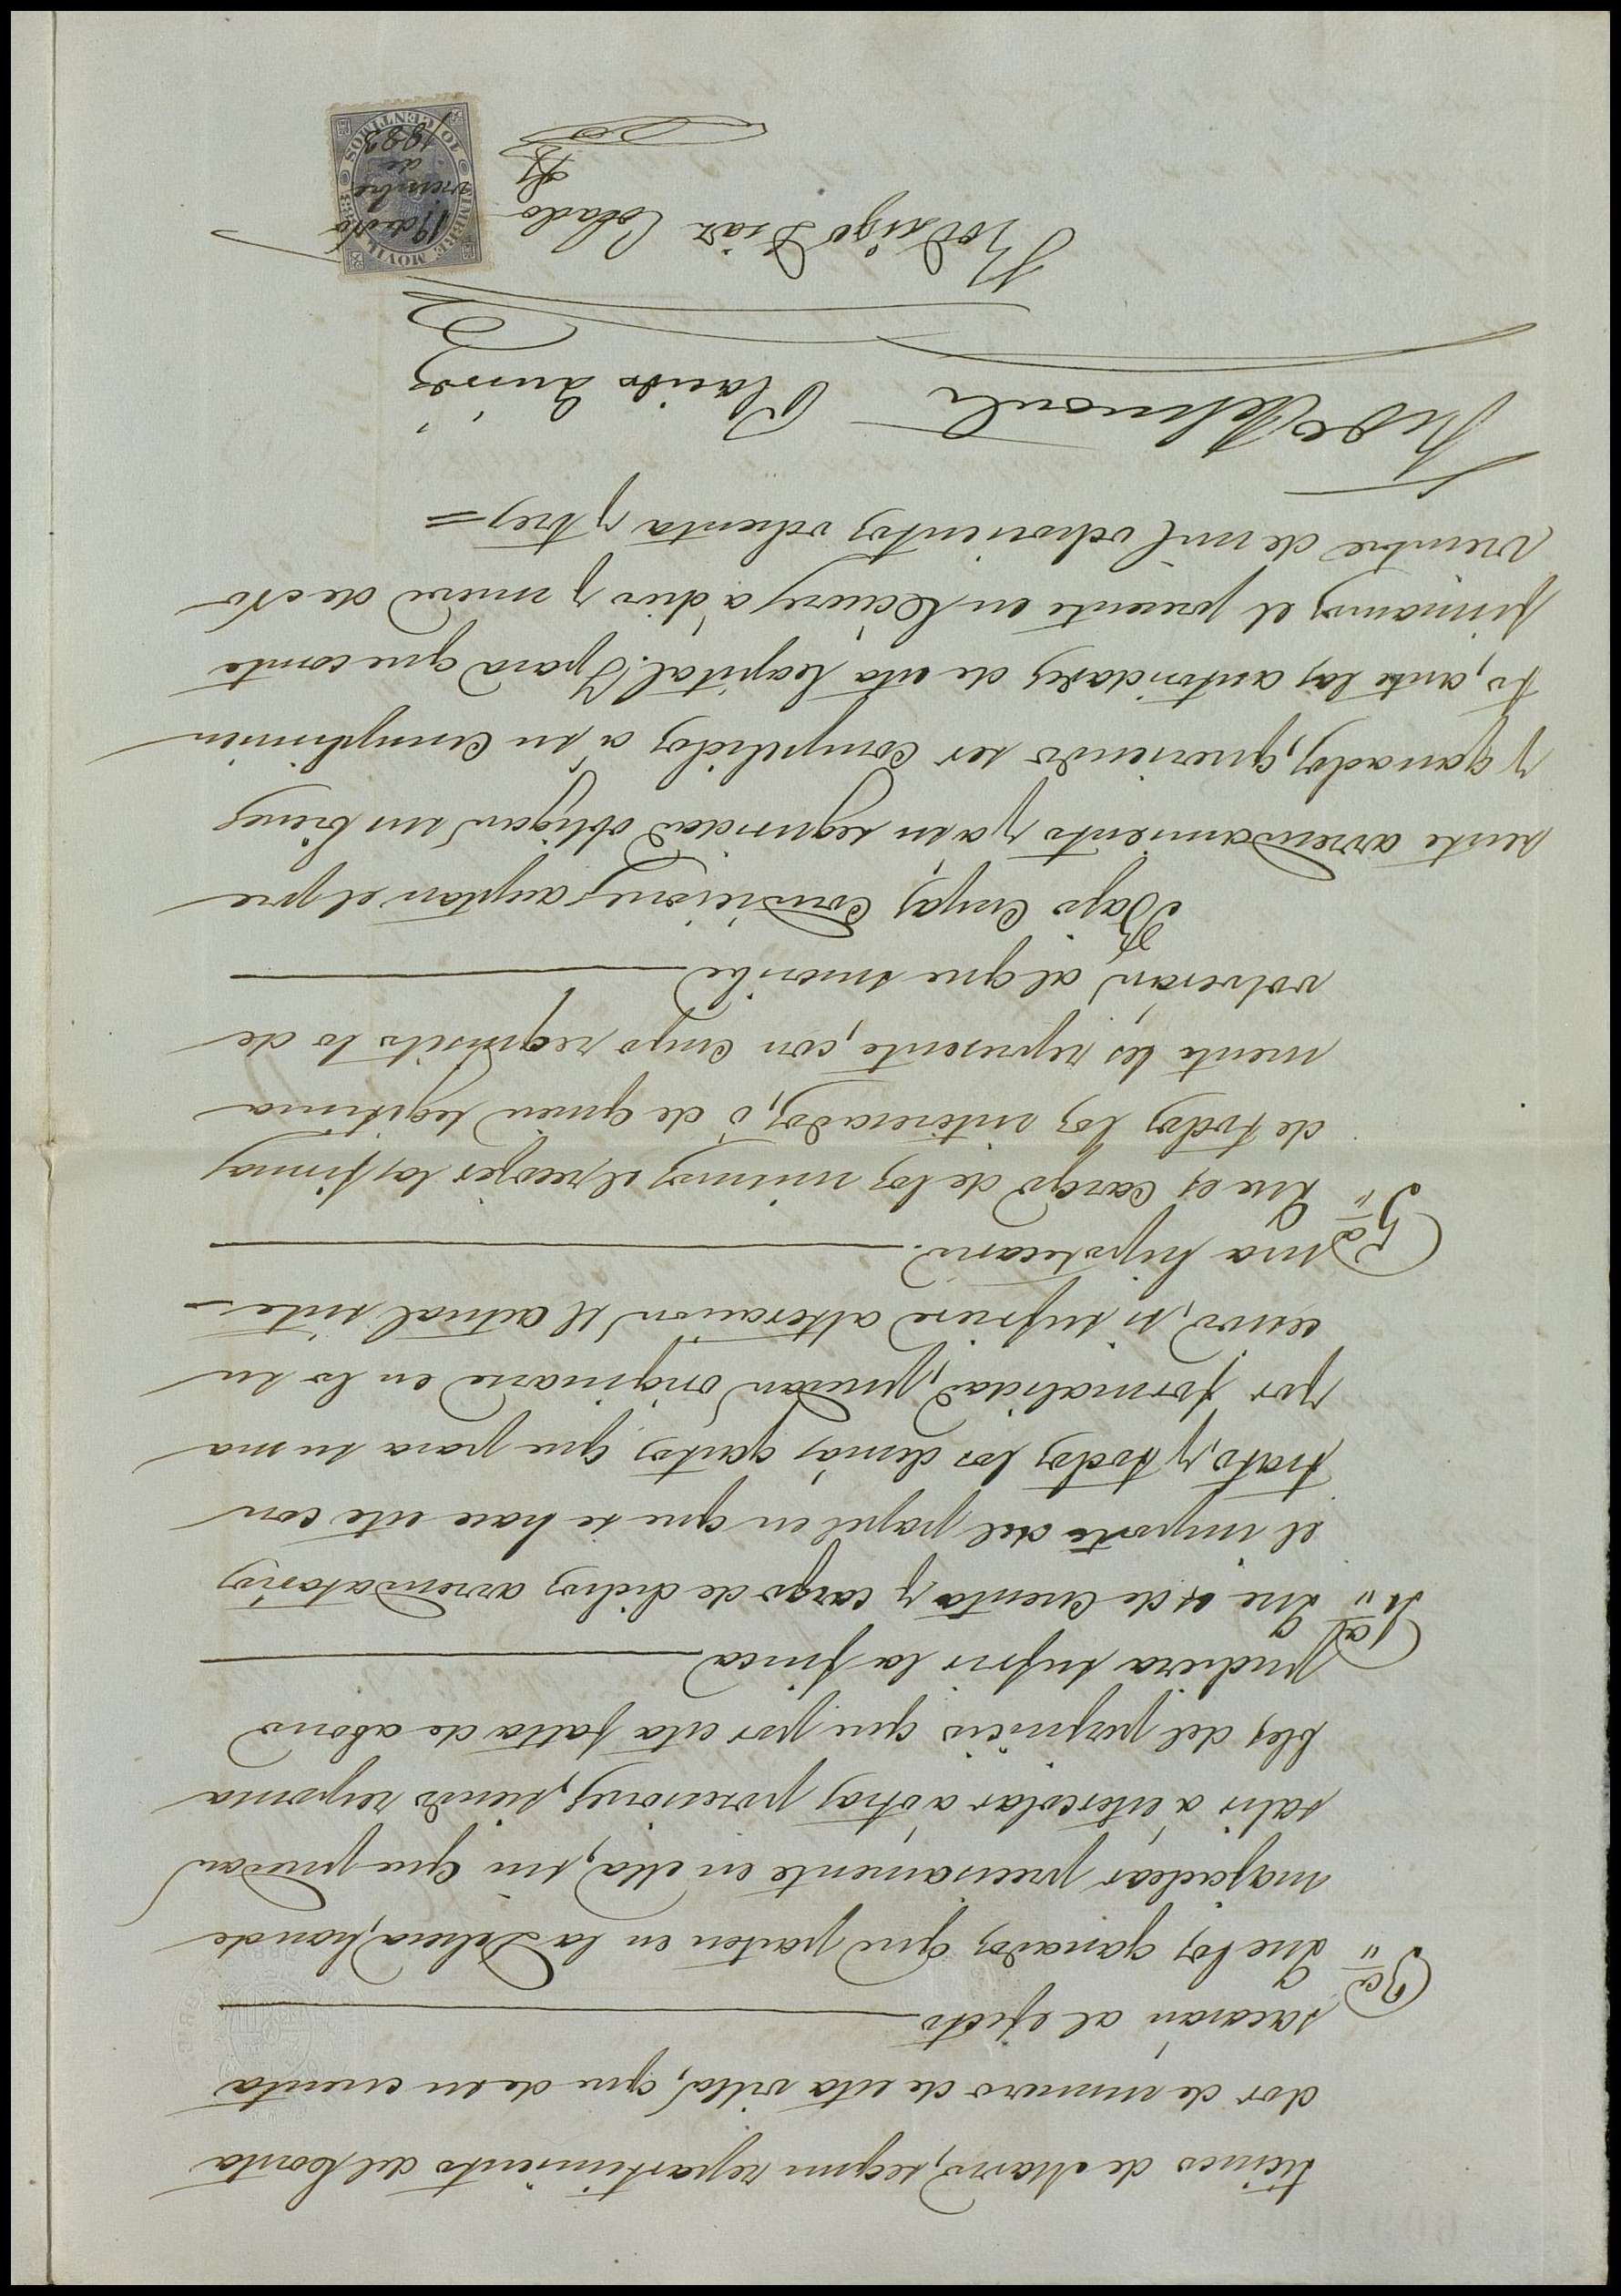 ticinco de Marzo, segun repartimiento del Conta
dor de numero de esta villa, que de su cuenta
sacarán al efecto
3ª " Que los ganados que pasten en la Dehesa, han de
majadear precisamente en ella, sin que puedan
salir á estercolar á otras posesiones, siendo responsa
bles del perjuicio que por esta falta de abono
pudiera sufrir la finca
4ª " Que es de cuenta y cargo de dichos arrendatarios
el importe del papel en que se hace este con
trato, y todos los demas gastos que para su ma
yor formalidad, puedan originarse en lo su
cesivo, si sufriese alteracion el actual siste-
ma hipotecario.
5ª " Que es cargo de los mismos el recoger las firmas
de todos los interesados, ó de quien legitima
mente les represente, con cuyo requisito lo de
volverán al que suscribe
Bajo cuyas condiciones aceptan el pre
sente arrendamiento y a su seguridad obligan sus bienes
y ganados, queriendo ser compelidos a su cumplimien
to, ante las autoridades de esta Capital. Y para que conste
firmamos el presente en Cáceres a diez y nueve de No
viembre de mil ochocientos ochenta y tres =
Placido
Rodrigo Diaz Collado
TIMBRE MOVIL
1883
10 CENTIMOS
19 de No
viembre
de
1883